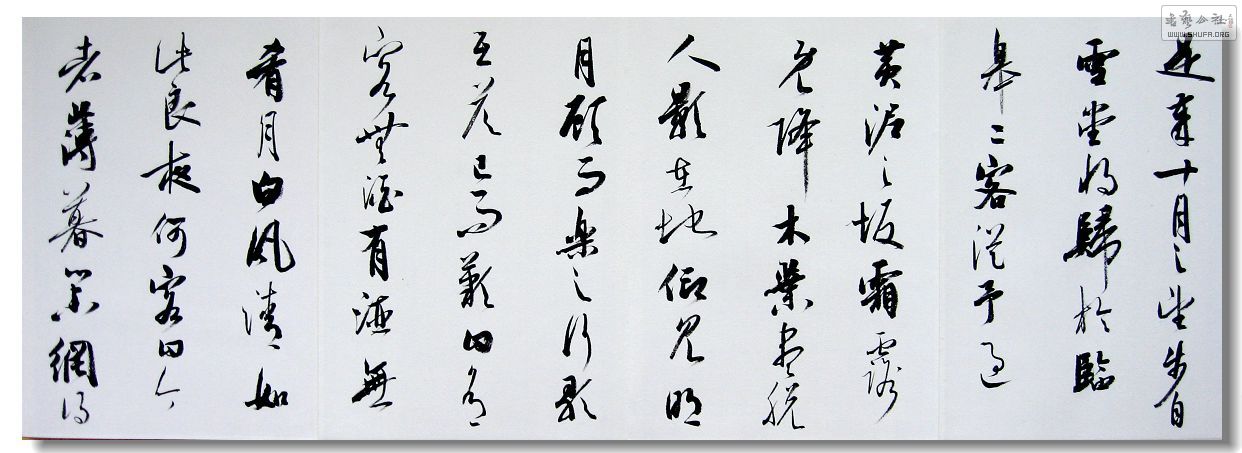 書藝公社
WWW.SHUFA.ORG
是歲十月之望步自
雪堂將歸於臨
皋二客從予過
黃泥之坂霜露
既降木葉盡脫
人影在地仰見明
月顧而樂之行歌
互答已而歎曰有
客無酒有酒無
肴月白風清如
此良夜何客曰今
者薄暮舉網得